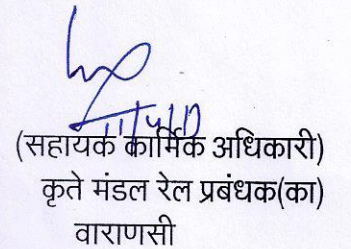 (सहायक कार्मिक अधिकारी)
कृते मंडल रेल प्रबंधक(का)
वाराणसी